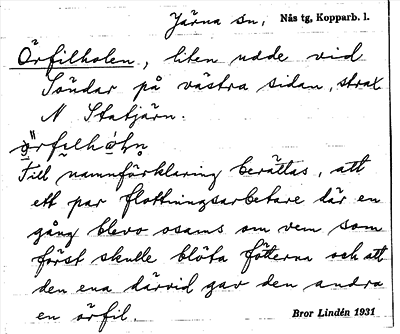 Järna sn, Nås tg, Kopparb. l.
Örfilholen, liten udde vid
Söndar på västra sidan, strax
N Statjärn.
Till namnförklaring berättas, att
ett par flottningsarbetare där en
gång blevo osams om vem som
först skulle blöta fötterna och att
den ena därvid gav den andra
en örfil. Bror Lindén 1931